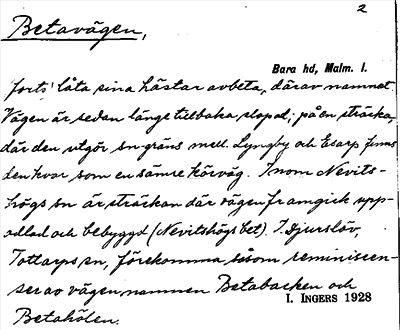 2
Betavägen,
Bara hd, Malm. l.
forts. låta sina hästar avbeta, därav namnet.
Vägen är sedan länge tillbaka slopad; på en sträcka,
där den utgör sn gräns mell. Lyngby och Esarp finns
den kvar som en sämre körväg. Inom Nevits-
högs sn är sträckan där vägen framgick upp-
odlad och bebyggd (Nevitshögs bet). I Djurslöv,
Tottarps sn, förekomma såsom reminiscen-
ser av vägen, namnen Betabacken och
I. INGERS 1928
Betahölen.